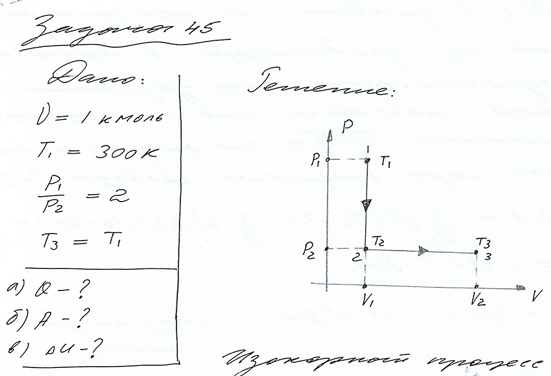 Задача 45
Дано:
ν = 1 кмоль
T₁ = 300 К
P₁/P₂ = 2
T₃ = T₁
а) Q – ?
б) A – ?
в) ΔU – ?
Решение:
P
P₁
1
T₁
P₂
2
T₂
T₃
3
V₁
V₂
V
Изохорный процесс